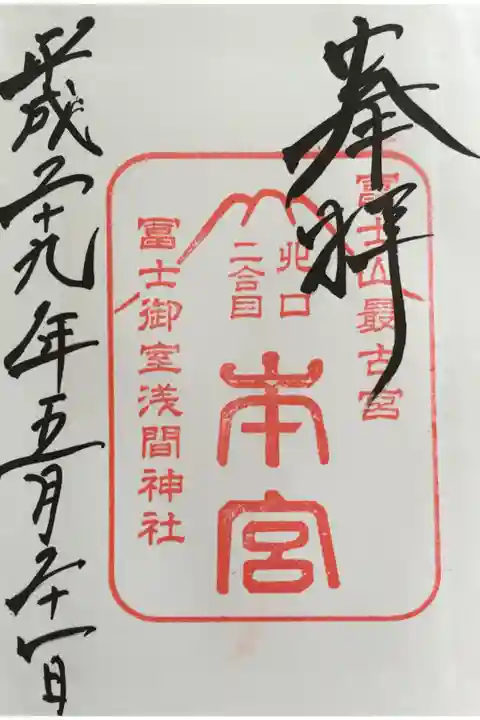 奉拝
冨士山最古宮
北口
二合目
本宮
冨士御室浅間神社
平成二十九年五月二十一日